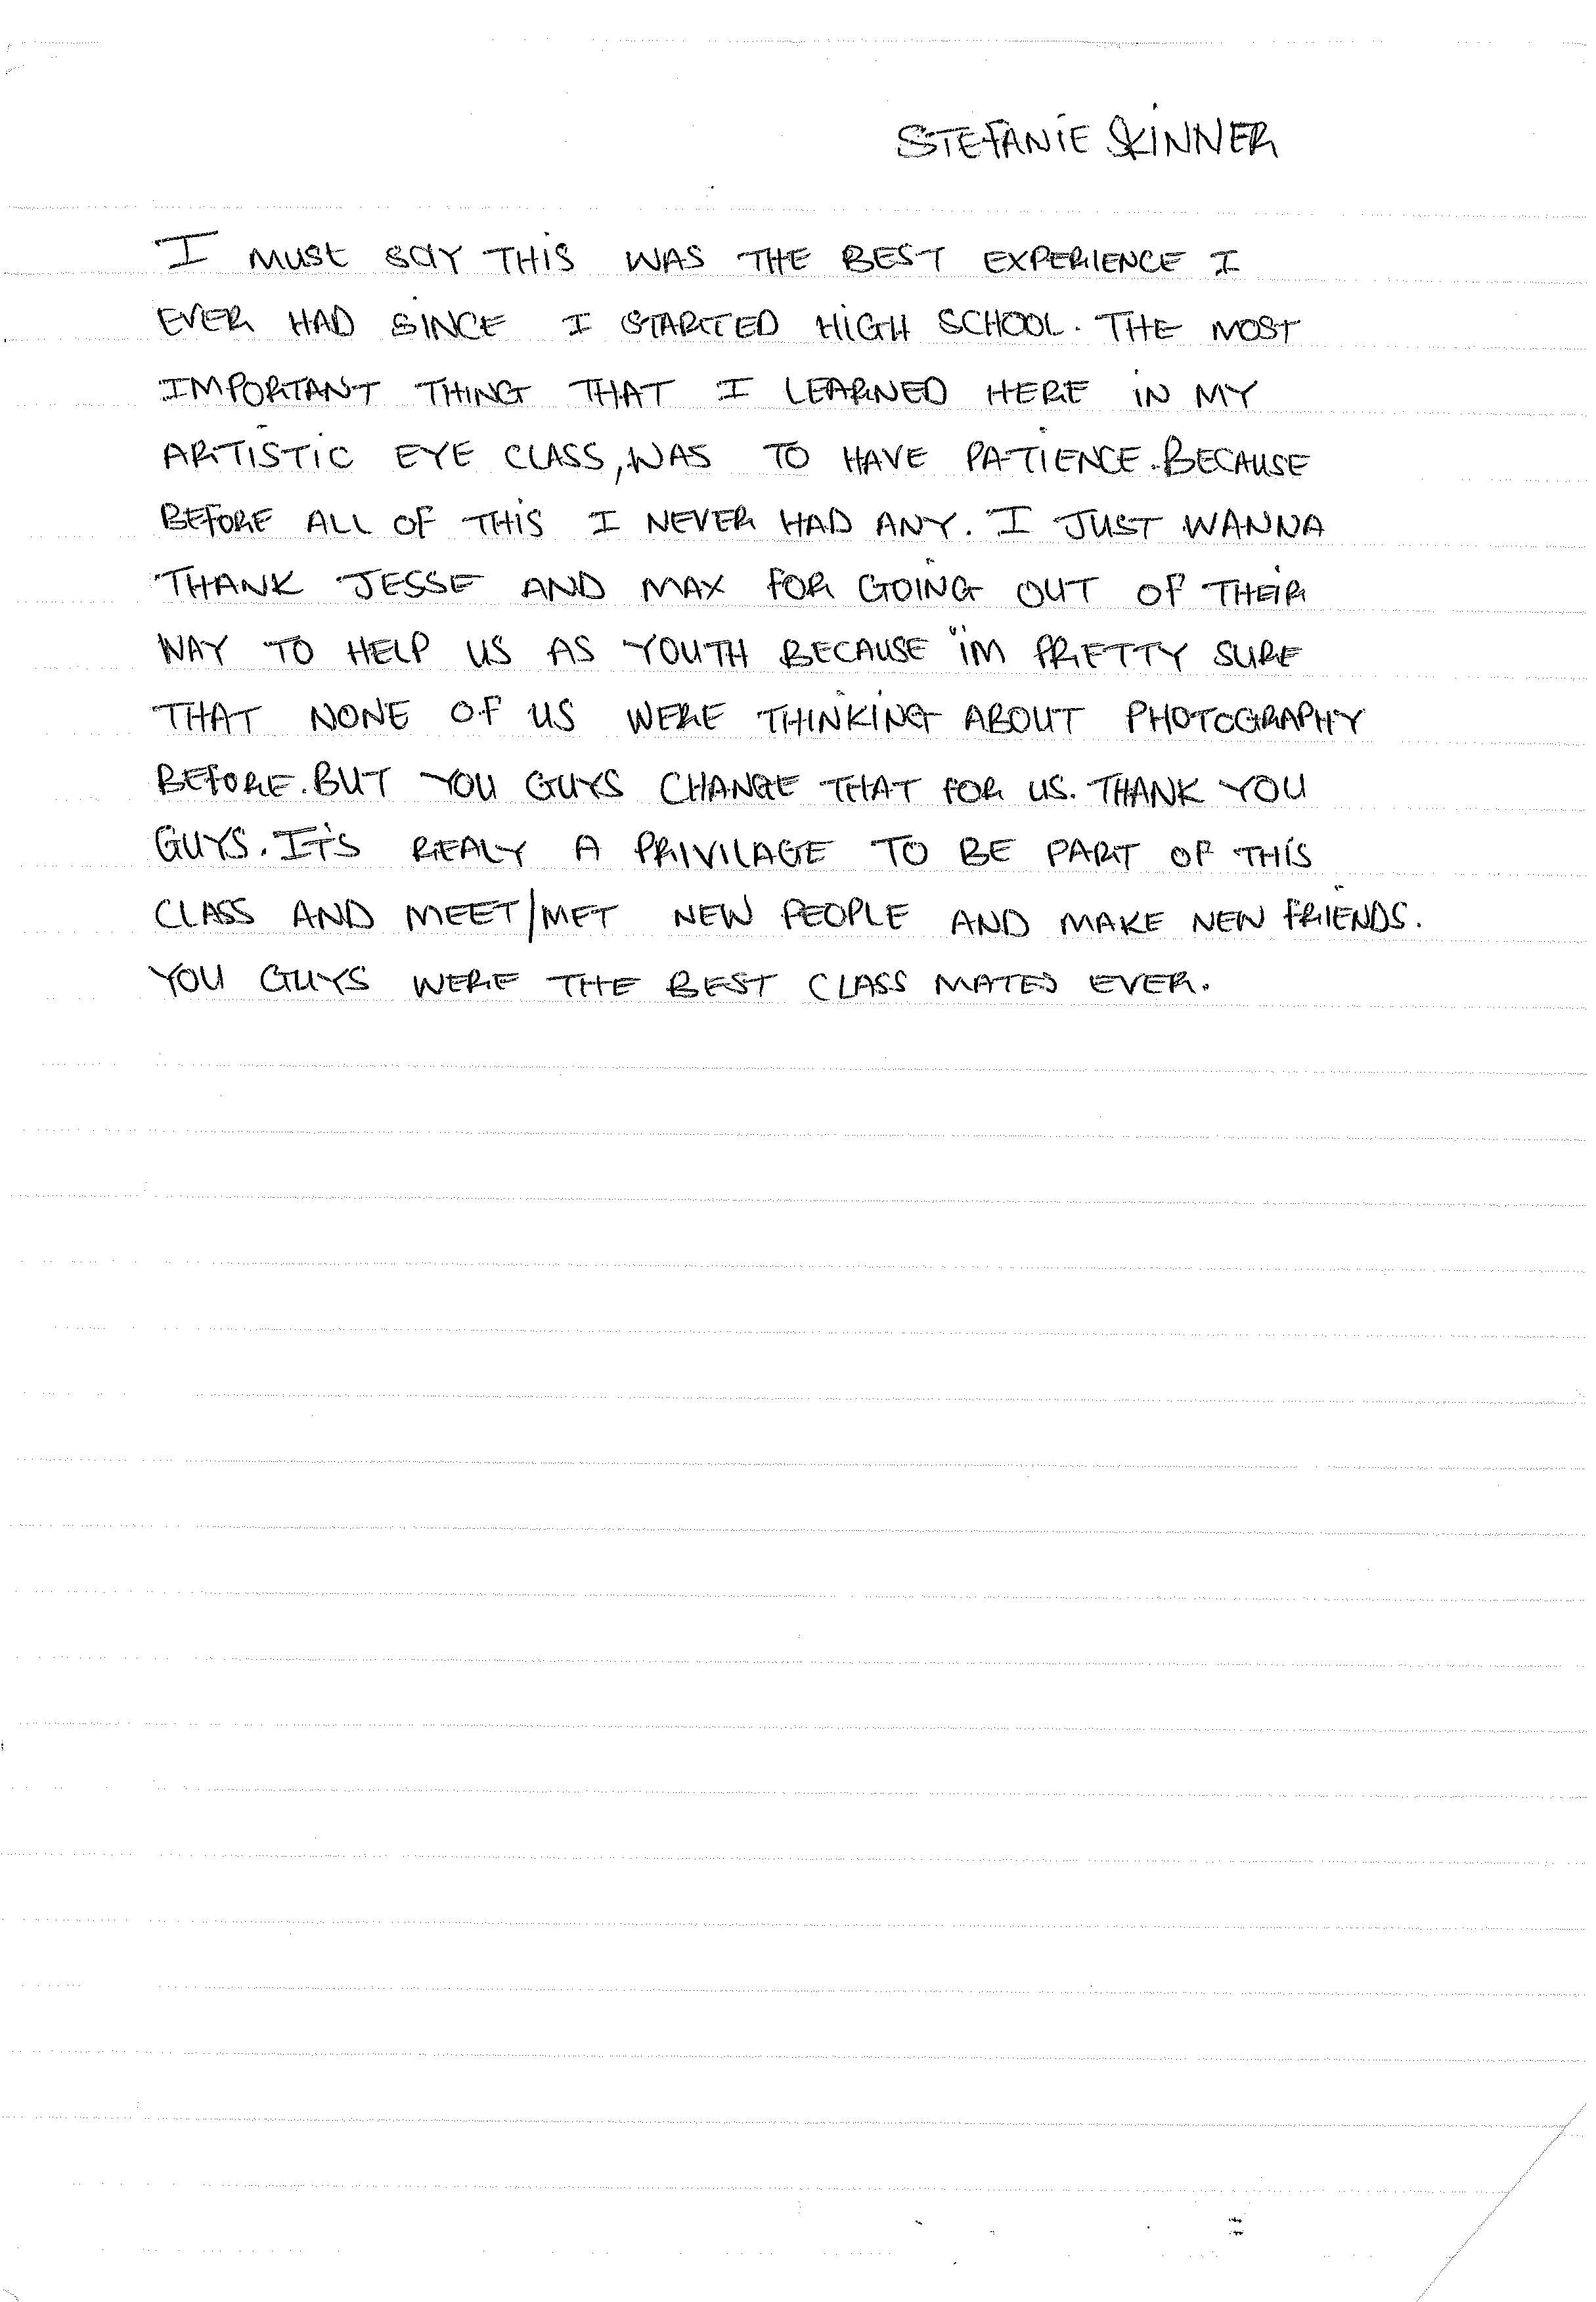 STEFANIE SKINNER
I MUST SAY THIS WAS THE BEST EXPERIENCE I
EVER HAD SINCE I STARTED HIGH SCHOOL. THE MOST
IMPORTANT THING THAT I LEARNED HERE IN MY
ARTISTIC EYE CLASS, WAS TO HAVE PATIENCE. BECAUSE
BEFORE ALL OF THIS I NEVER HAD ANY. I JUST WANNA
THANK JESSE AND MAX FOR GOING OUT OF THEIR
WAY TO HELP US AS YOUTH BECAUSE I'M PRETTY SURE
THAT NONE OF US WERE THINKING ABOUT PHOTOGRAPHY
BEFORE. BUT YOU GUYS CHANGE THAT FOR US. THANK YOU
GUYS. IT'S REALY A PRIVILAGE TO BE PART OF THIS
CLASS AND MEET/MET NEW PEOPLE AND MAKE NEW FRIENDS.
YOU GUYS WERE THE BEST CLASS MATES EVER.